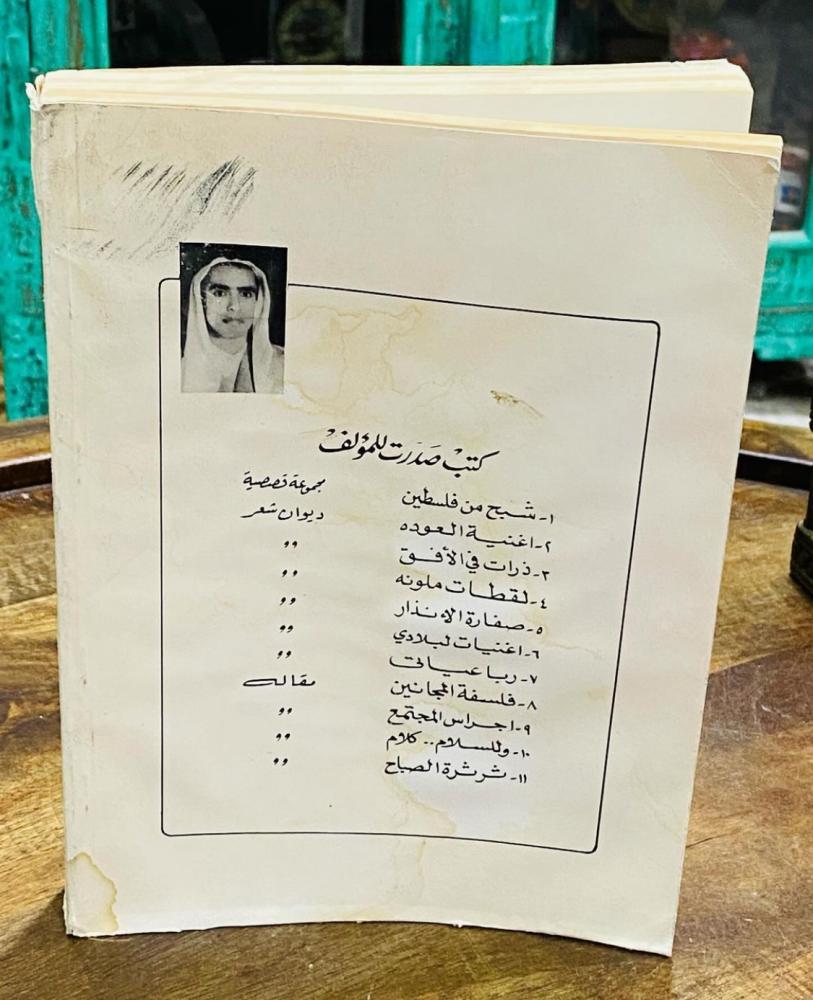 كتب صدرت للمؤلف
١- شبح من فلسطين مجموعة قصصية
٢- اغنية العوده ديوان شعر
٣- ذرات في الأفق ,,
٤- لقطات ملونه ,,
٥- صفارة الانذار ,,
٦- اغنيات لبلادي ,,
٧- رباعياتى ,,
٨- فلسفة المجانين مقاله
٩- اجراس المجتمع ,,
١٠- وللسلام.. كلام ,,
١١- ثرثرة الصباح ,,